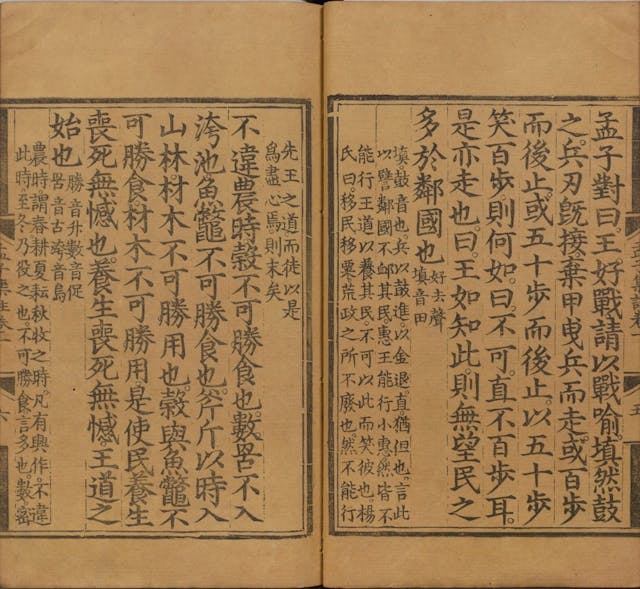 孟子對曰。王好戰請以戰喻。填然鼓
之。兵刃旣接。棄甲曳兵而走。或百步
而後止。或五十步而後止。以五十步
笑百步則何如。曰。不可。直不百步耳。
是亦走也。曰。王如知此。則無望民之
多於鄰國也。好去聲
填音田
填鼓音也。兵以鼓進。以金退。直猶但也。言此
以譬鄰國不卹其民惠王能行小惠然皆不
能行王道以養其民。不可以此而笑彼也。楊
氏曰。移民移粟荒政之所不廢也。然不能行
先王之道而徒以是
爲盡心焉則末矣
不違農時穀不可勝食也。數罟不入
洿池魚鼈不可勝食也。斧斤以時入
山林材木不可勝用也。穀與魚鼈不
可勝食材木不可勝用是使民養生
喪死無憾也。養生喪死無憾王道之
始也。勝音升數音促
罟音古洿音烏
農時謂春耕夏耘秋收之時。凡有興作。不違
此時。至冬乃役之也。不可勝食言多也。數密
六